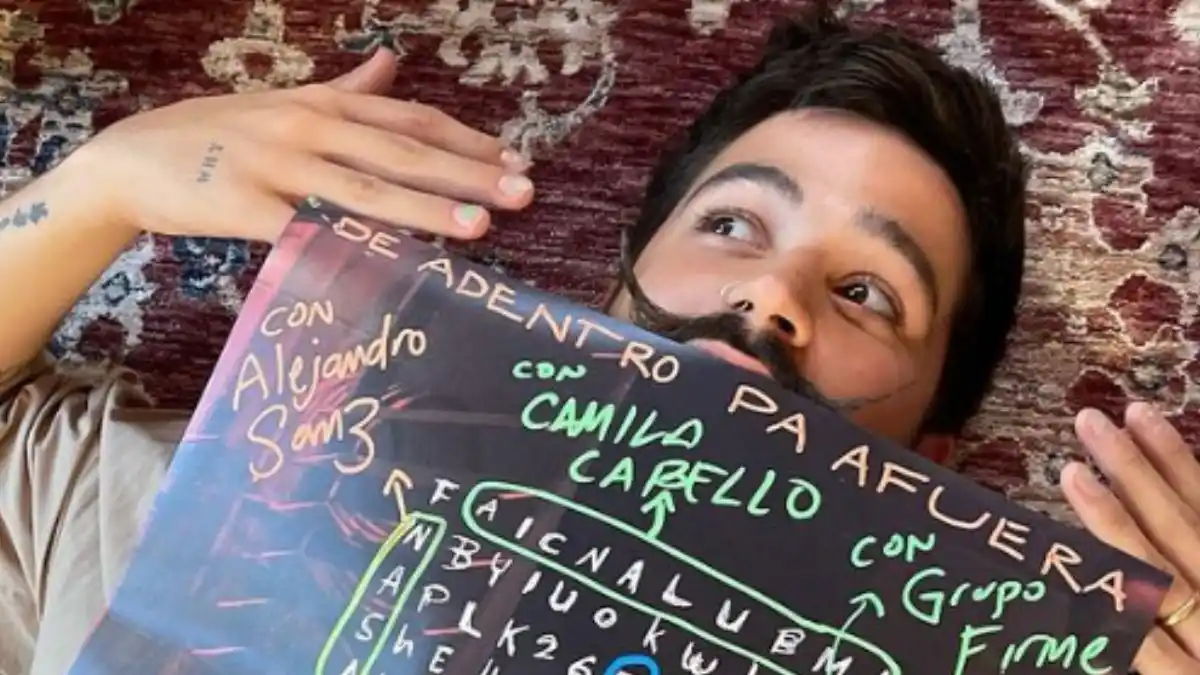 DE ADENTRO PA AFUERA
CON
Alejandro
Sanz
CON
CAMILA
CABELLO
CON
Grupo
Firme
F A I C N A L U B M A
N B Y I U O K W
A P L K 2 6
S h E